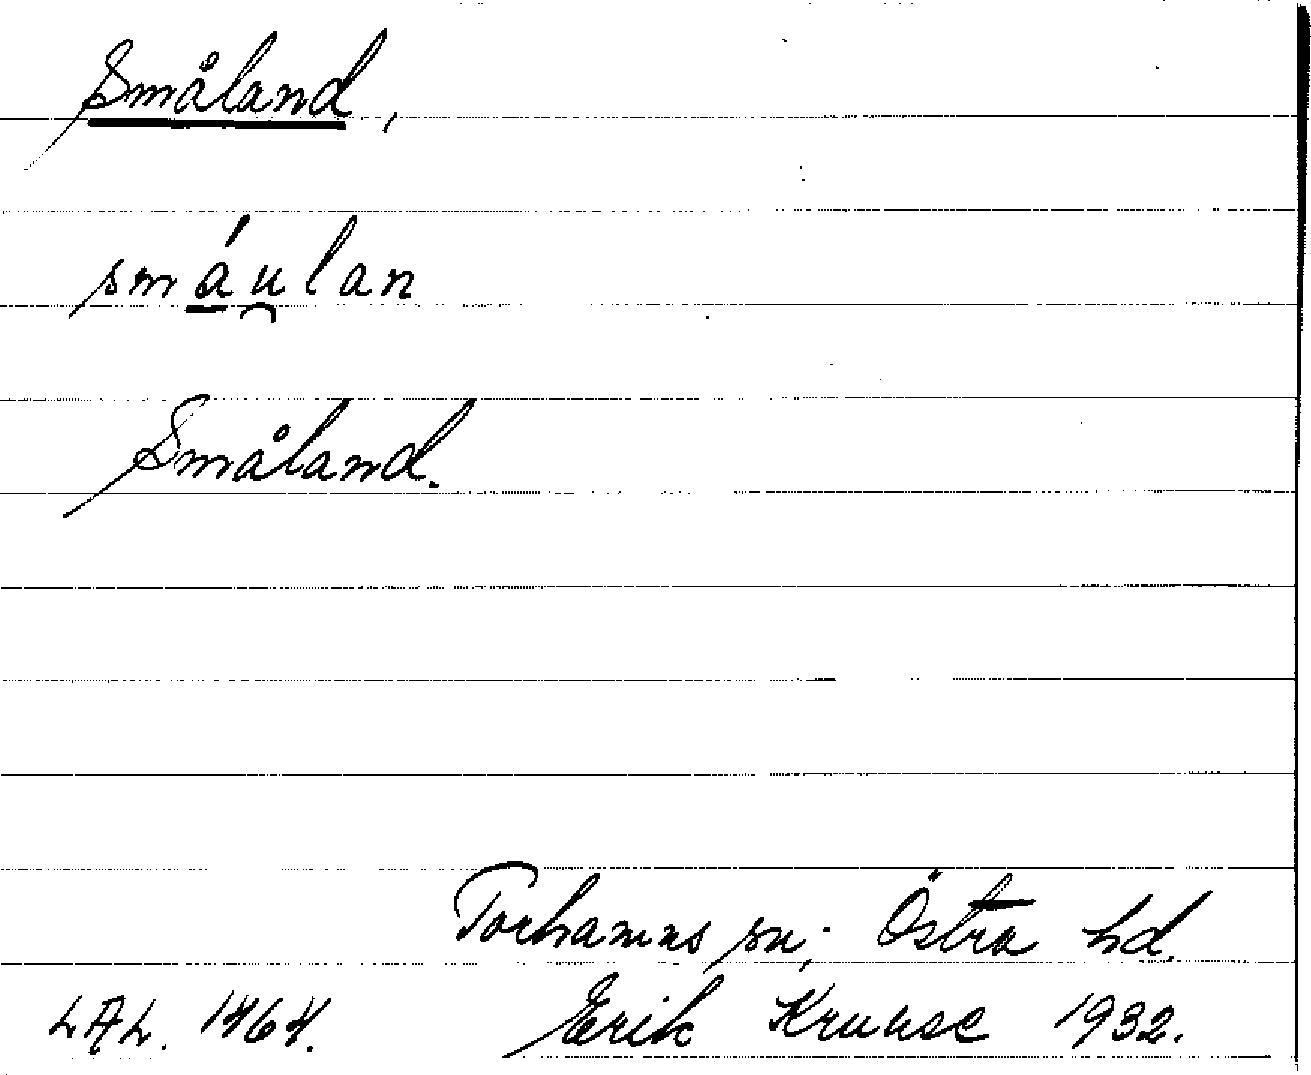 Småland,
smáu̯lan
Småland.
Torhamns sn; Östra hd.
LAL. 1464. Erik Kruuse 1932.